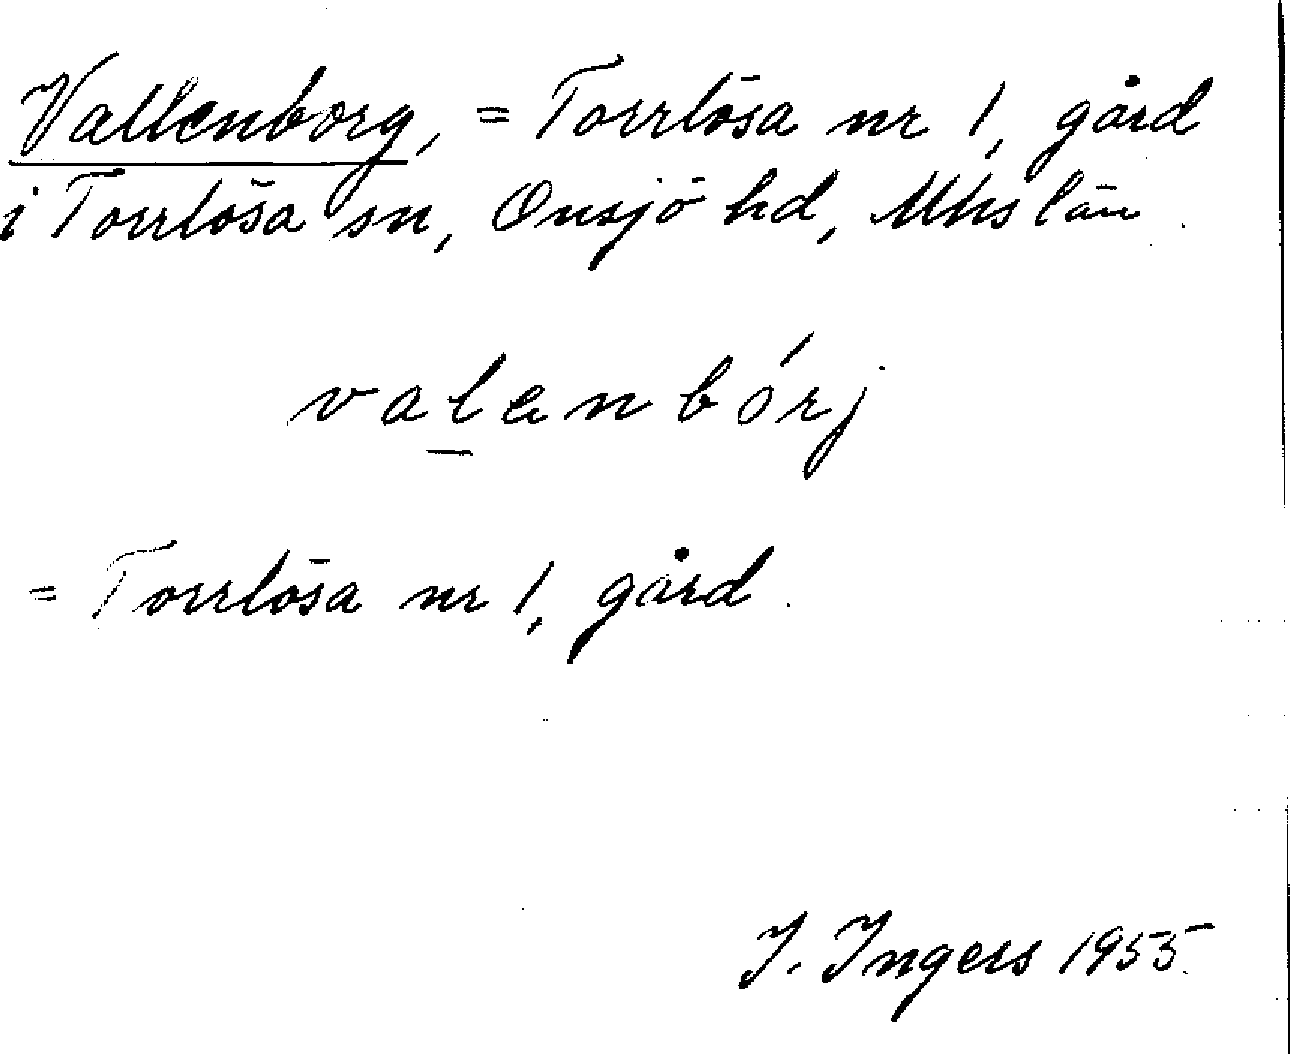 Vallenborg, = Torrlösa nr 1, gård
i Torrlösa sn, Onsjö hd, Mhs län.
valenbórj
= Torrlösa nr 1, gård.
I. Ingers 1955.